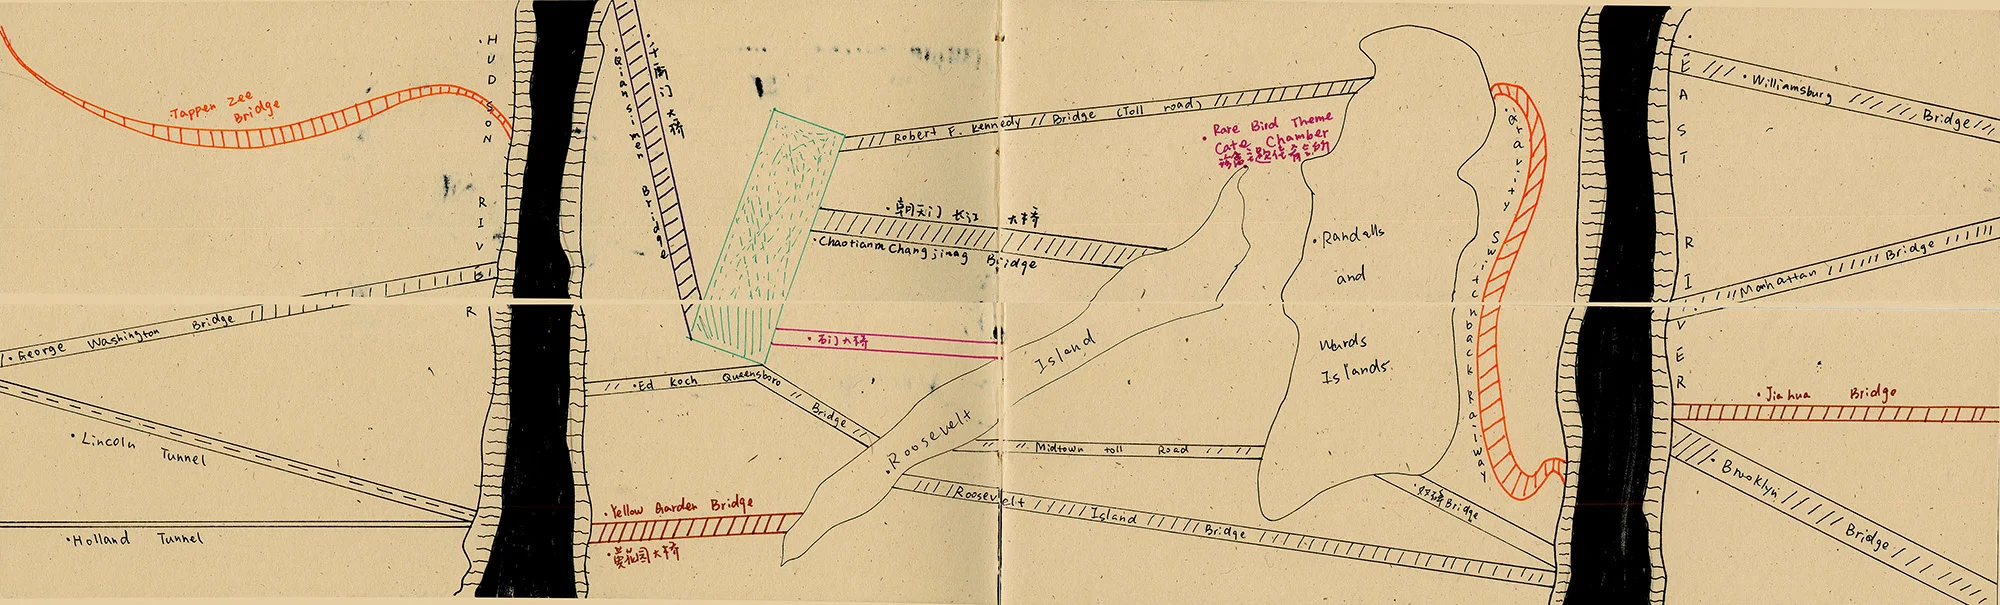 Tappen Zee
Bridge
HUDSON RIVER
George Washington Bridge
Lincoln Tunnel
Holland Tunnel
千厮门大桥
Qiansimen Bridge
Robert F. Kennedy Bridge (Toll road)
朝天门 长江 大桥
Chaotianm Changjinag Bridge
石门大桥
Ed Koch Queensboro Bridge
Yellow Garden Bridge
黄花园大桥
Roosevelt Island
Midtown toll Road
Roosevelt Island Bridge
Rare Bird Theme
Cate Chamber
Randalls
and
Wards
Islands
Gravity Switchback Railway
Bridge
EAST RIVER
Williamsburg Bridge
Manhattan Bridge
Jiahua Bridge
Brooklyn Bridge